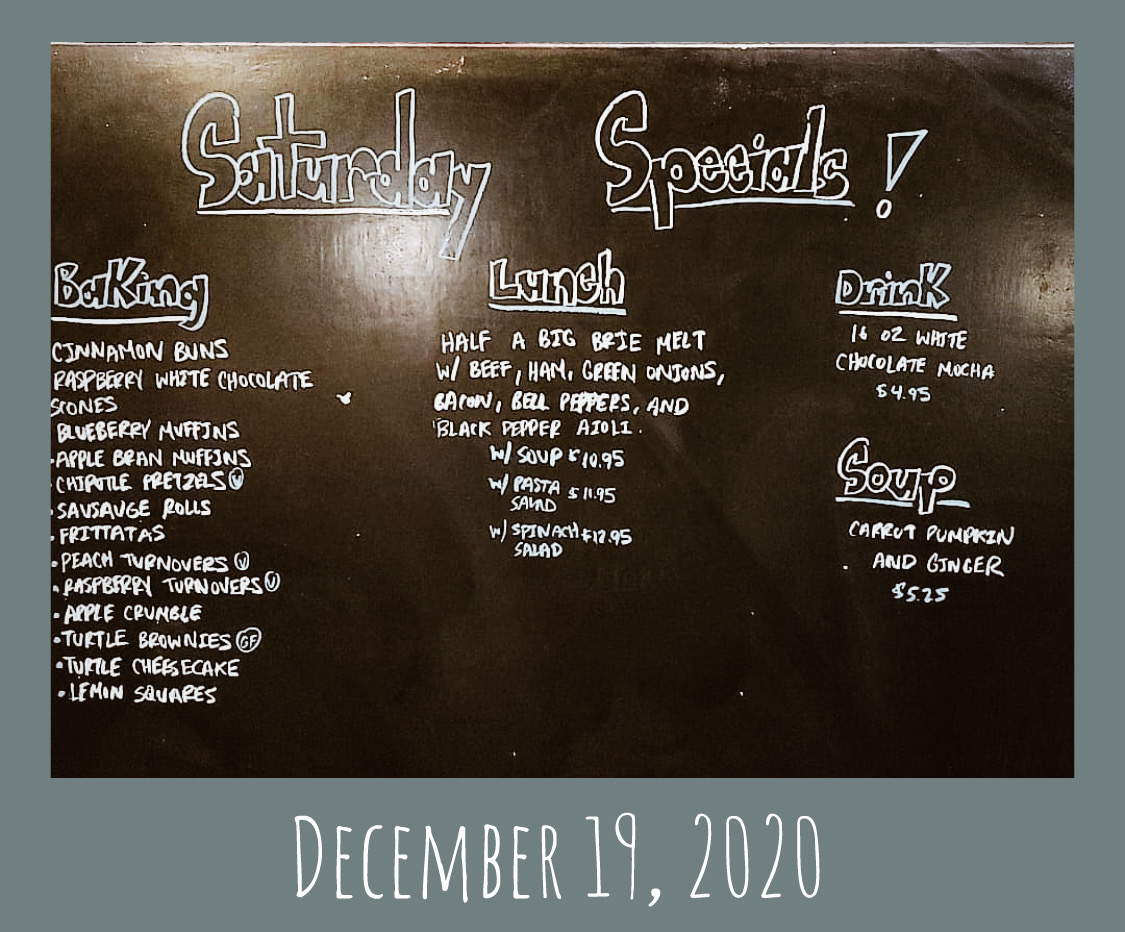 Saturday Specials!
Baking
CINNAMON BUNS
RASPBERRY WHITE CHOCOLATE
SCONES
BLUEBERRY MUFFINS
•APPLE BRAN MUFFINS
•CHIPOTLE PRETZELS Ⓥ
•SAUSAUGE ROLLS
•FRITTATAS
•PEACH TURNOVERS Ⓥ
•RASPBERRY TURNOVERS Ⓥ
•APPLE CRUMBLE
•TURTLE BROWNIES GF
•TURTLE CHEESECAKE
•LEMON SQUARES
Lunch
HALF A BIG BRIE MELT
W/ BEEF, HAM, GREEN ONIONS,
BACON, BELL PEPPERS, AND
BLACK PEPPER AIOLI.
W/ SOUP $10.95
W/ PASTA $11.95
SALAD
W/ SPINACH $12.95
SALAD
Drink
16 OZ WHITE
CHOCOLATE MOCHA
$4.95
Soup
CARROT PUMPKIN
AND GINGER
$5.25
DECEMBER 19, 2020